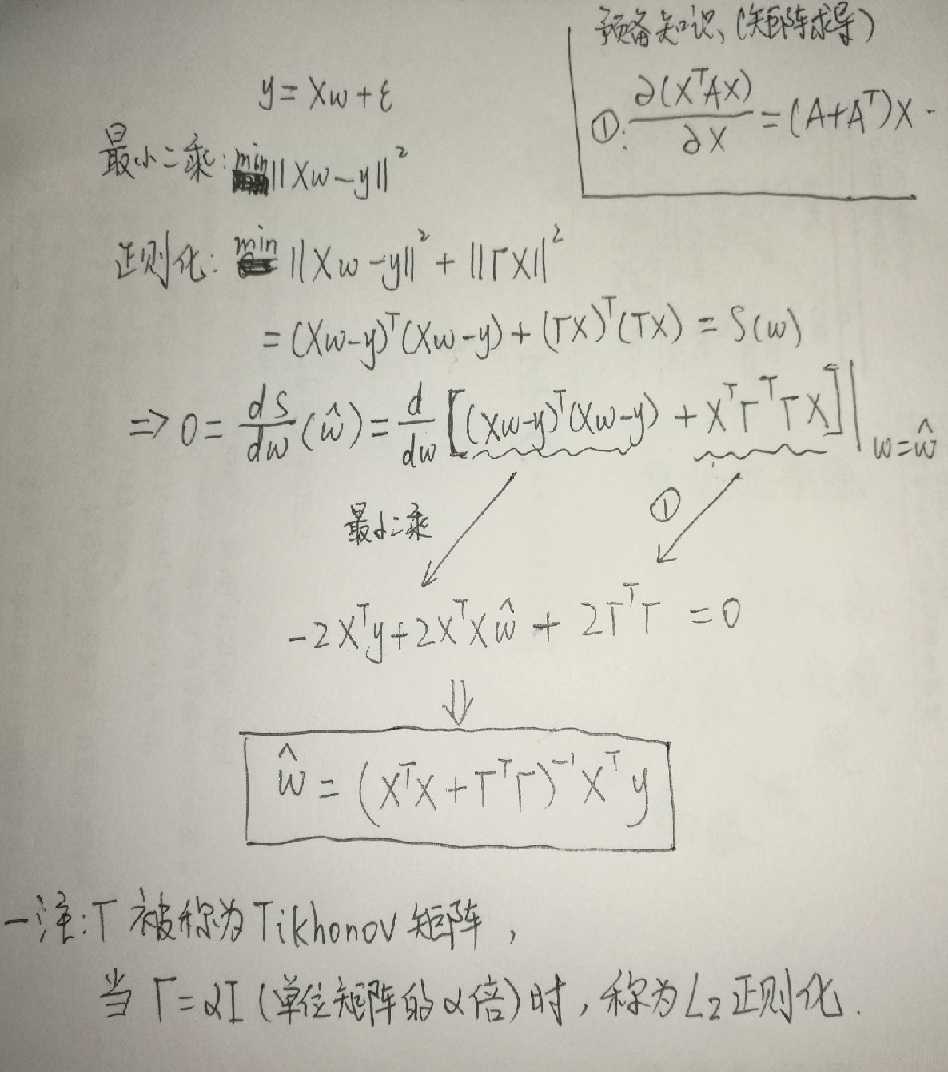 预备知识、(矩阵求导)
①: ∂(XᵀAX)/∂X = (A+Aᵀ)X.
y = Xw + ε
最小二乘: min ||Xw-y||²
正则化: min ||Xw-y||² + ||ΓX||²
= (Xw-y)ᵀ(Xw-y) + (ΓX)ᵀ(ΓX) = S(w)
⇒ 0 = dS/dw (ŵ) = d/dw [(Xw-y)ᵀ(Xw-y) + XᵀΓᵀΓX] | w=ŵ
最小二乘 ①
-2Xᵀy + 2XᵀXŵ + 2ΓᵀΓ = 0
⇓
ŵ = (XᵀX + ΓᵀΓ)⁻¹Xᵀy
-注: Γ 被称为 Tikhonov 矩阵,
当 Γ = αI (单位矩阵的α倍) 时, 称为 L₂ 正则化.